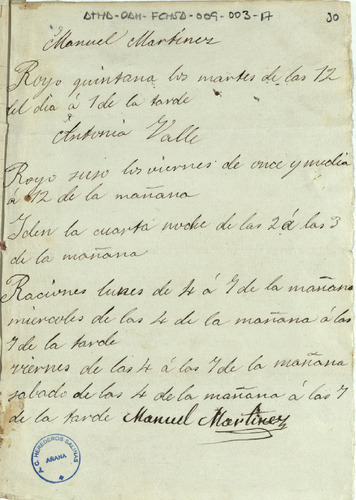 ATHA-DAH-FCHSA-009-003-17
30
Manuel Martinez
Royo quintana los martes de las 12
del dia á 1 de la tarde
Antonia Valle
Royo suso los viernes de once y media
á 12 de la mañana
Iden la cuarta noche de las 2 á las 3
de la mañana
Raciones lunes de 4 á 7 de la mañana
miercoles de las 4 de la mañana á las
7 de la tarde
viernes de las 4 á las 7 de la mañana
sabado de las 4 de la mañana á las 7
de la tarde Manuel Martinez
P.C. HEREDEROS SALINAS
AÑANA